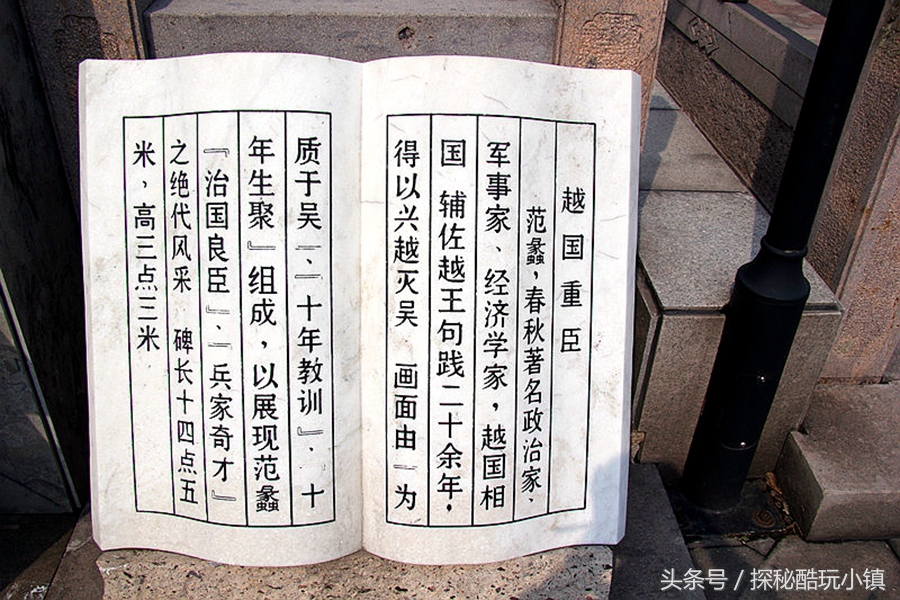 越国重臣
范蠡，春秋著名政治家、
军事家、经济学家，越国相
国 辅佐越王句践二十余年，
得以兴越灭吴 画面由『为
质于吴』、『十年教训』、十
年生聚』组成，以展现范蠡
『治国良臣』、『兵家奇才』
之绝代风采 碑长十四点五
米，高三点三米
头条号 / 探秘酷玩小镇